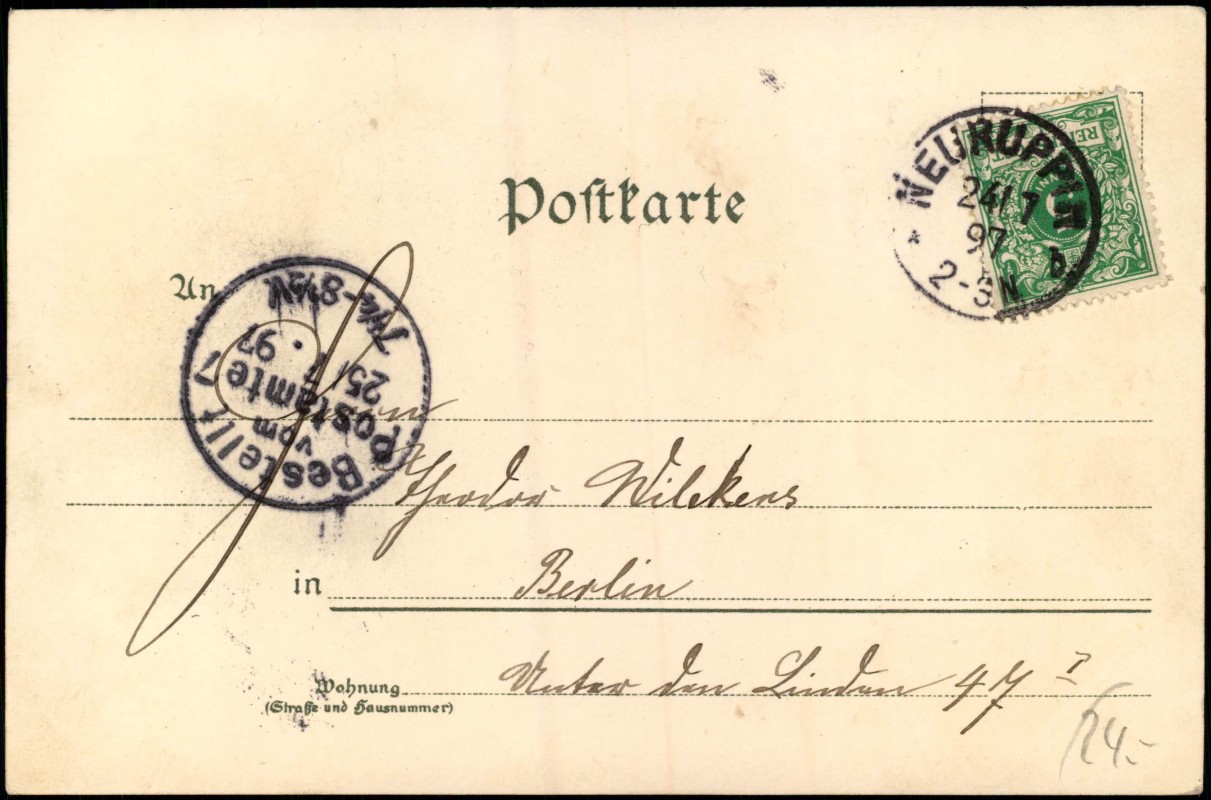 Postkarte
NEURUPPIN
24/7
97
2-3N
b
An
Bestellt
vom
Postamte 7
25/7
97
7¼-8½N
Herrn
Theodor Wilckens
in Berlin
Wohnung Unter den Linden 47 I
(Straße und Hausnummer)
24.-